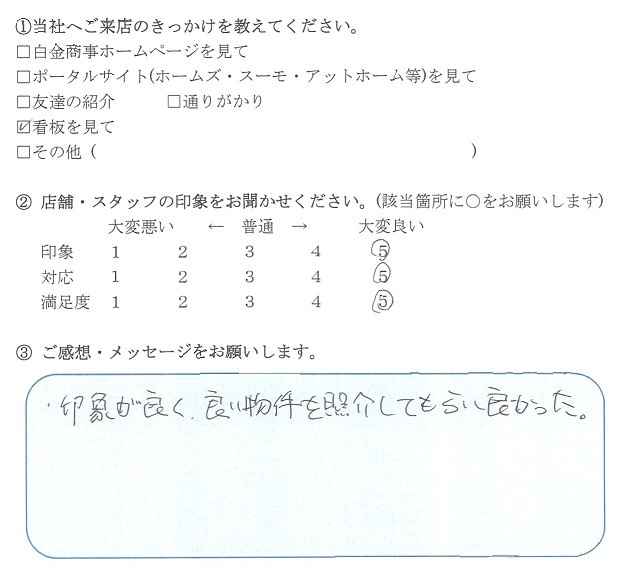 ①当社へご来店のきっかけを教えてください。
□白金商事ホームページを見て
□ポータルサイト(ホームズ・スーモ・アットホーム等)を見て
□友達の紹介　　　□通りがかり
☑看板を見て
□その他（　　　　　　　　　　　　　　　　　　　　　　）
② 店舗・スタッフの印象をお聞かせください。(該当箇所に○をお願いします)
大変悪い　←　普通　→　大変良い
印象　1　2　3　4　5
対応　1　2　3　4　5
満足度　1　2　3　4　5
③ ご感想・メッセージをお願いします。
・印象が良く、良い物件を照介してもらい良かった。